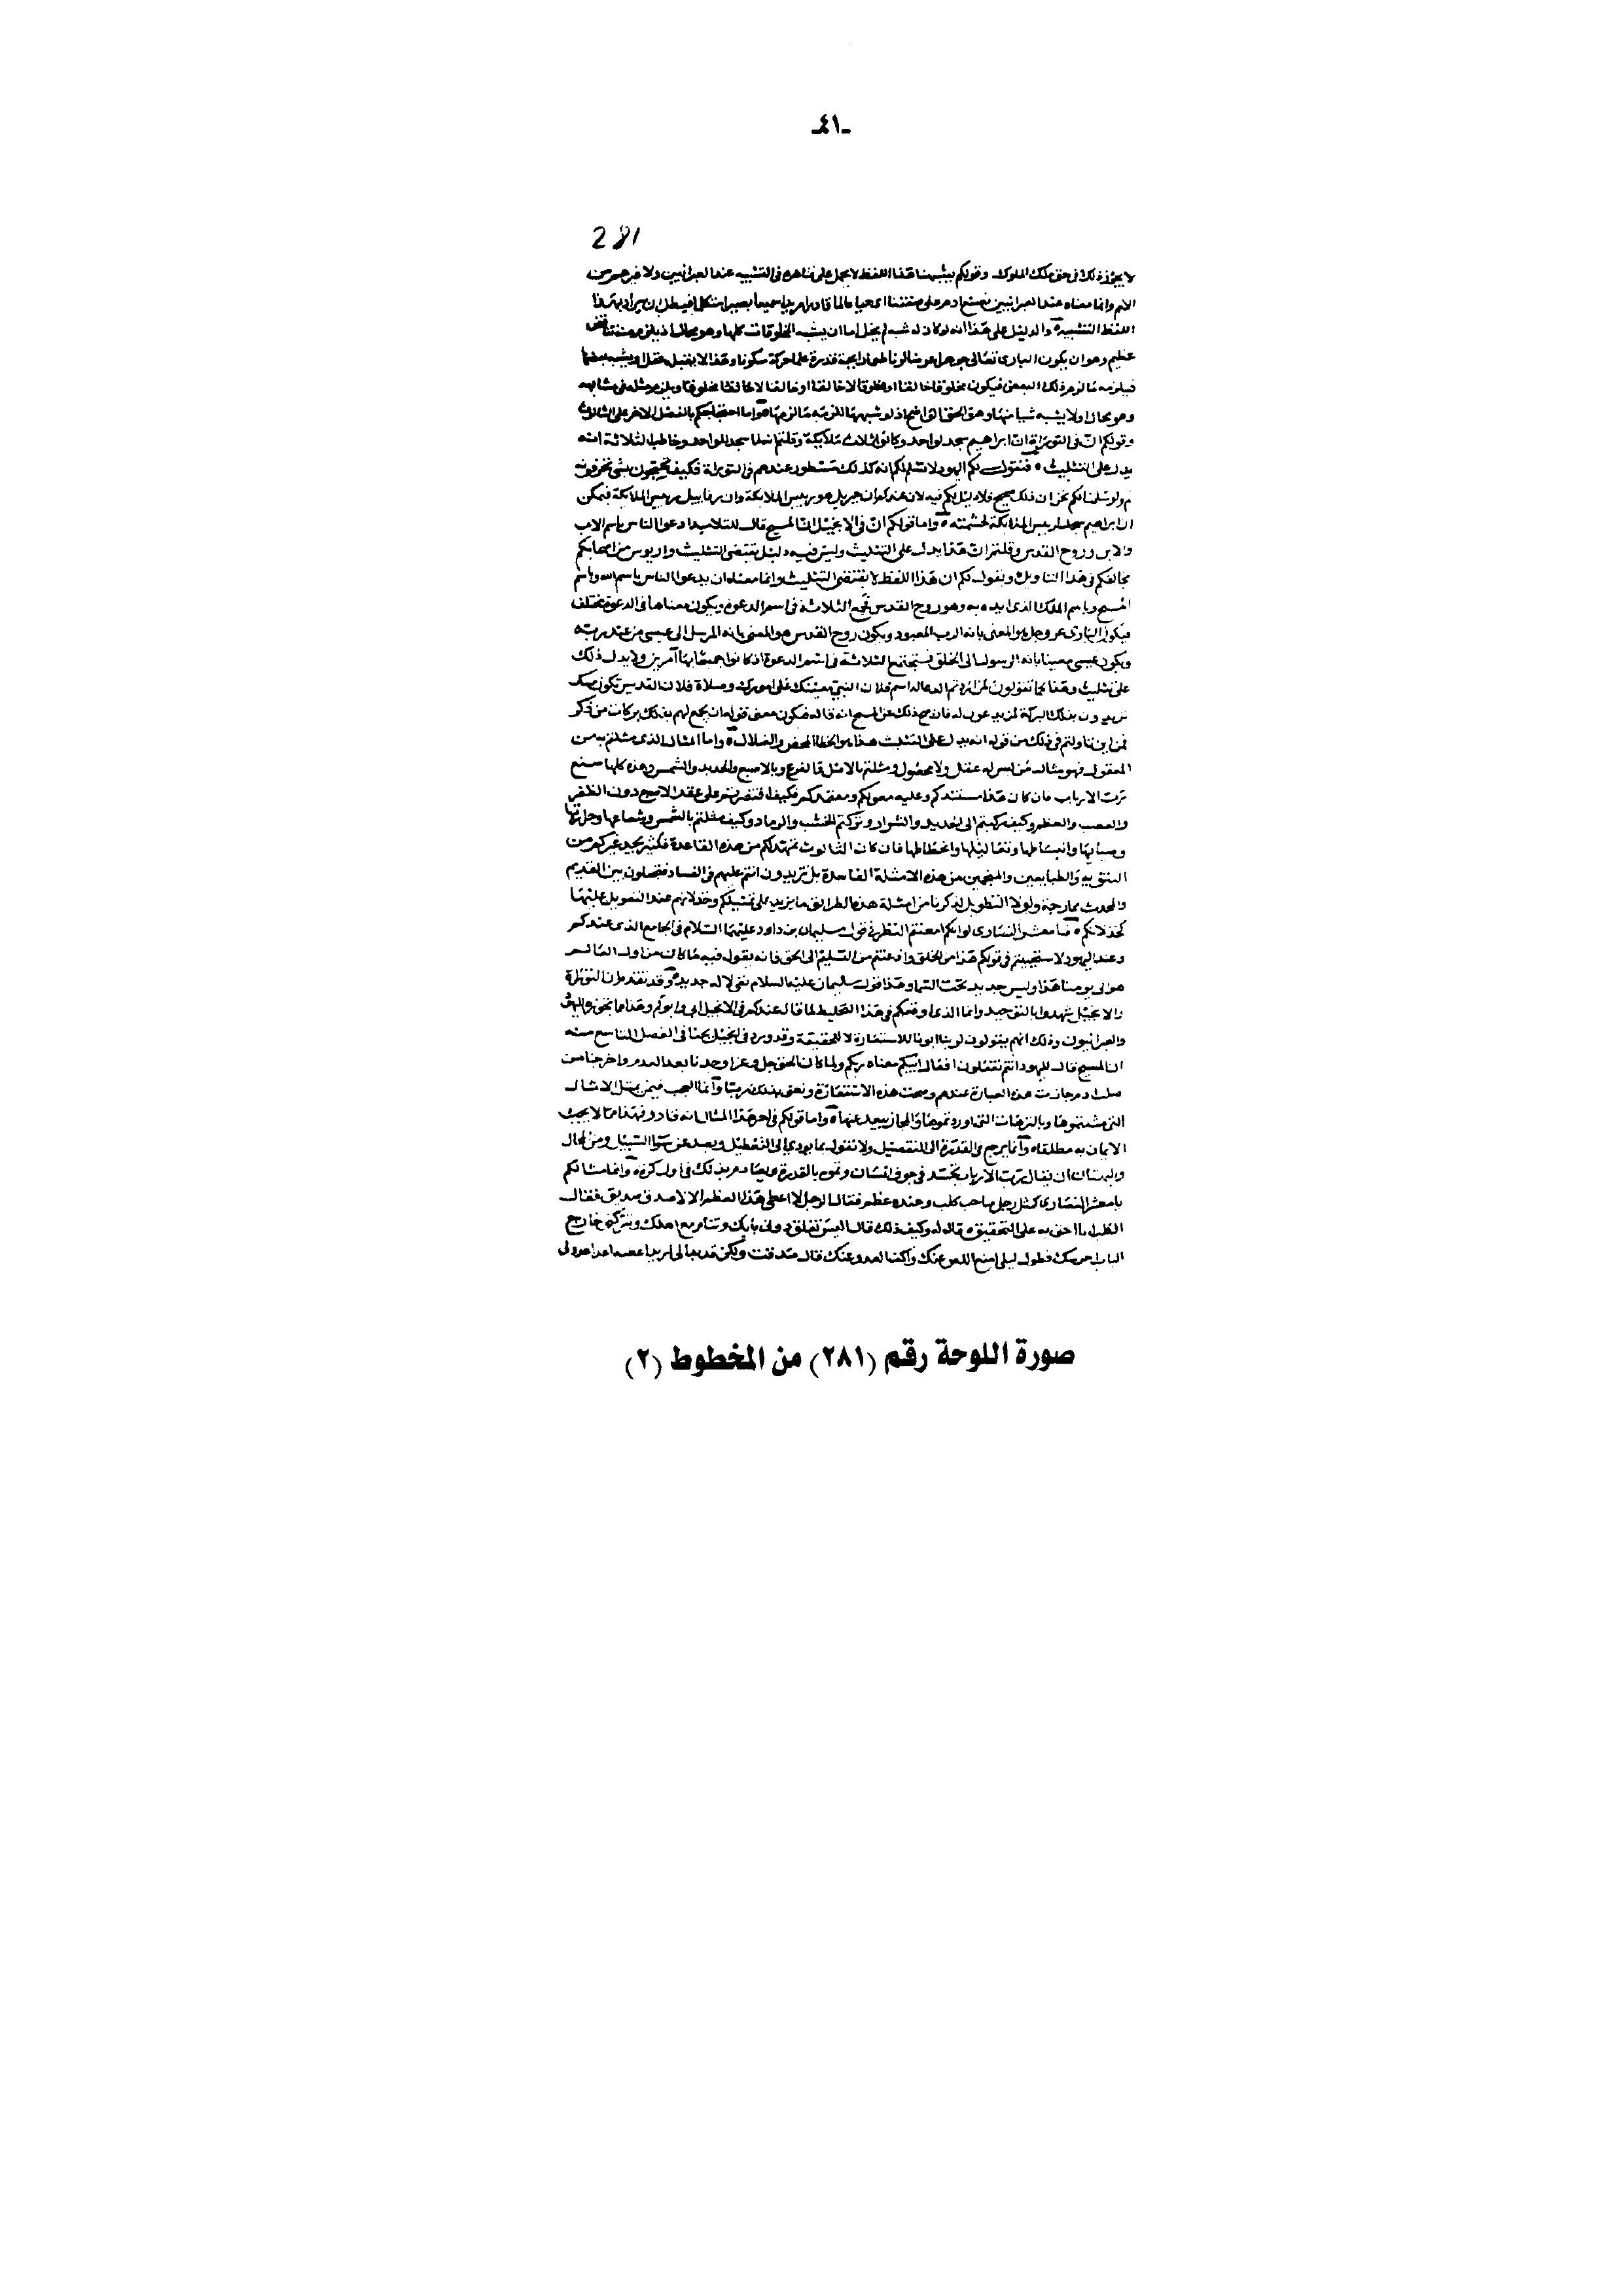 ـ٤١ـ
281
لا يجوز ذلك في حق ملك الملوك وقولكم بشبهنا هذا اللفظ لا يحمل على ظاهره في التشبيه عند العبرانيين ولا غيرهم من
الامم وانما معناه عند العبرانيين
اللفظ التشبيه والدليل على هذا انه لو كان له شبه لم يخل اما ان يشبه المخلوقات كلها وهو محال اذ يلزم منه تناقض
عظيم وهو ان يكون الباري تعالى
فيلزمه ما لزم ذلك البعض فيكون مخلوقا خالقا او مخلوقا لا خالقا او خالقا لا مخلوقا
وهو محال او لا يشبه شيا منها وهو الحق الواضح اذ لو شبهها للزمه ما لزمها واما احتجاجكم بالفصل الاخر على الثالوث
وقولكم ان في التوراة ان ابراهيم سجد لواحد وكانوا ثلاث ملايكة وقلتم انما سجد للواحد وخاطب الثلاثة انه
يدل على التثليث فنقول لكم اليهود لا تسلم لكم انه كذلك مسطور عندهم في التوراة فكيف تحتجون بشي تحرفونه
ثم ولو سلمنا لكم نحن ان ذلك صحيح فلا دليل لكم فيه لان عندكم ان جبريل هو رييس الملايكة وان رفاييل رييس الملايكة فيمكن
ان ابراهيم سجد لرييس الملايكة لحشمته واما قولكم ان في الانجيل ان المسيح قال للتلاميذ ادعوا الناس باسم الاب
والابن وروح القدس وقلتم ان هذا يدل على التثليث وليس فيه دليل يقتضي التثليث واريوس من اصحابكم
يخالفكم في هذا التاويل ويقول لكم ان هذا اللفظ لا يقتضي التثليث وانما معناه ان يدعوا الناس باسم الله وباسم
المسيح وباسم الملك الذي ايده به وهو روح القدس فجمع الثلاثة في اسم الدعوة ويكون معناها في الدعوة مختلف
فيكون الباري عز وجل هو المعني بانه الرب المعبود ويكون روح القدس هو المعني بانه المرسل الى عيسى من عند ربه
ويكون عيسى معينا بانه الرسول الى الخلق فتجتمع الثلاثة في اسم الدعوة اذ كانوا جميعا بها آمرين ولا يدل ذلك
على تثليث وهذا كما تقولون لمن اردتم الدعا له اسم فلان النبي يعينك على امورك وصلاة فلان القديس تكون معك
تريدون بذلك البركة لمن يدعون له فان صح ذلك عن المسيح انه قاله فيكون معنى قوله ان يجمع لهم بذلك بركات من ذكر
فمن اين تاولتم في ذلك من قوله انه يدل على التثليث هذا هو الخطا المحض والضلال واما المثال الذي مثلتم به من
المعقول فهو مثال من ليس له عقل ولا محصول ومثلتم بالاصل والفرع وبالاصبع والحديد والشمس وهذه كلها صنع
رب الارباب فان كان هذا مستندكم وعليه معولكم ومعتمدكم فكيف اقتصرتم على عقد الاصبع دون الظفر
والعصب والعظم وكيف ركبتم الى الحديد والنار وتركتم الخشب والرماد وكيف مثلتم بالشمس وشعاعها وحرارتها
وضيائها وانبساطها وانحطاطها فان كان الثالوث تمهد لكم من هذه القاعدة فكثير يجد غيركم من
الثنوية والطبايعين والمنجمين من هذه الامثلة الفاسدة بل تزيدون انتم عليهم في الفساد فتصلون بين القديم
والمحدث ولولا التطويل لذكرنا من امثلة هذه الطرايق ما يزيد على تمثيلكم وخذلانهم عند التعويل عليها
كخذلانكم يا معشر النصارى لو انكم امعنتم النظر في قول سليمان بن داود عليهما السلام في الجامع الذي عندكم
وعند اليهود لاستحييتم في قولكم هذا من الخلق واذعنتم من التسليم الى الحق فانه يقول فيه ما كان من اول العالم
هو الى يومنا هذا وليس جديد تحت السما وهذا قول سليمان عليه السلام وقد تقدم ان التوراة
والانجيل شهدوا بالتوحيد وانما الذي اوقعكم في هذا التخليط لما قال عندكم في الانجيل ابي وابوكم وهذا
والعبرانيون وذلك انهم يقولون لربنا ابونا للاستعارة لا للحقيقة وقد ورد في انجيل يحنا في الفصل التاسع منه
ان المسيح قال لليهود انتم تقتلون افعال ابيكم معناه ربكم ولما كان الحق جل وعز اوجدنا بعد العدم واخرجنا من
صلب ادم جازت هذه العبارة عندهم وصحت هذه الاستعارة وانما العجب فيمن يمثل الامثال
التي مثلتموها وبالترهات التي اوردتموها والمجاز بعيد عنها واما قولكم في اخر هذا المثال انه قادر فهذا مما لا يجب
الايمان به مطلقا وانما يرجع في القدرة الى التفصيل ولا نقول بما يودي الى التعطيل ويصد عن سوا السبيل ومن المحال
والبهتان ان يقال رب الارباب يتجسد في جوف انسان وانما مثالكم
يا معشر النصارى كمثل رجل صاحب كلب وعنده عظم فقال الرجل لا اعطي هذا العظم الا لاصدق صديق فقال
الكلب انا احق به على التحقيق قال له وكيف ذلك قال اليس تغلق دوني بابك وتنام مع اهلك وتتركني خارج
الباب احرسك فطول ليلي امنع اللص عنك واكف العدو عنك قال صدقت ولكن
صورة اللوحة رقم (٢٨١) من المخطوط (٢)